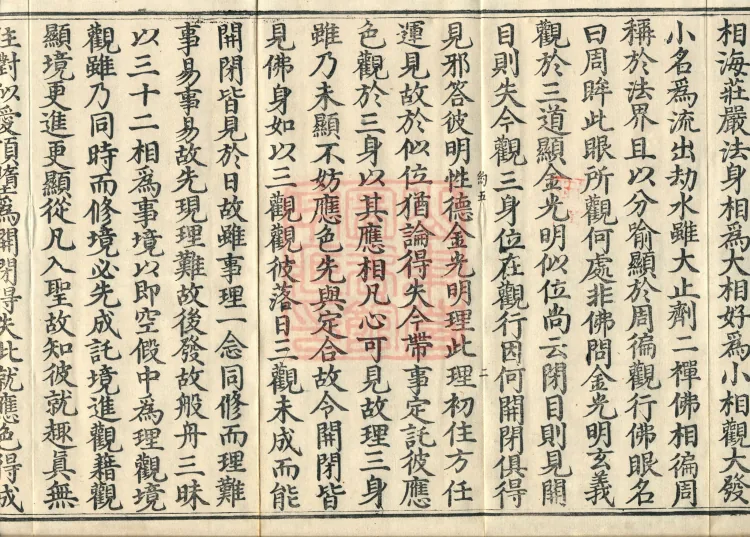 相海莊嚴法身相爲大相好爲小相觀大發
小名爲流出劫水雖大止劑二禪佛相徧周
稱於法界且以分喻顯於周徧觀行佛眼名
曰周眸此眼所觀何處非佛問金光明玄義
觀於三道顯金光明似位尚云閉目則見開
目則失今觀三身位在觀行因何開閉俱得
約五
二
見邪答彼明性德金光明理此理初住方任
運見故於似位猶論得失今帶事定託彼應
色觀於三身以其應相凡心可見故理三身
雖乃未顯不妨應色先與定合故令開閉皆
見佛身如以三觀觀彼落日三觀未成而能
開閉皆見於日故雖事理一念同修而理難
事易事易故先現理難故後發故般舟三昧
以三十二相爲事境以即空假中爲理觀境
觀雖乃同時而修境必先成託境進觀藉觀
顯境更進更顯從凡入聖故知彼就趣眞無
生對似愛頂墮爲開閉得失此就應色得成